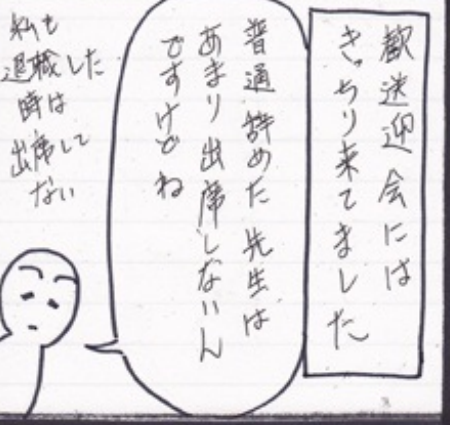 歓送迎会には
きっちり来てました
普通辞めた先生は
あまり出席しないん
ですけどね
私も
退職した
時は
出席して
ない